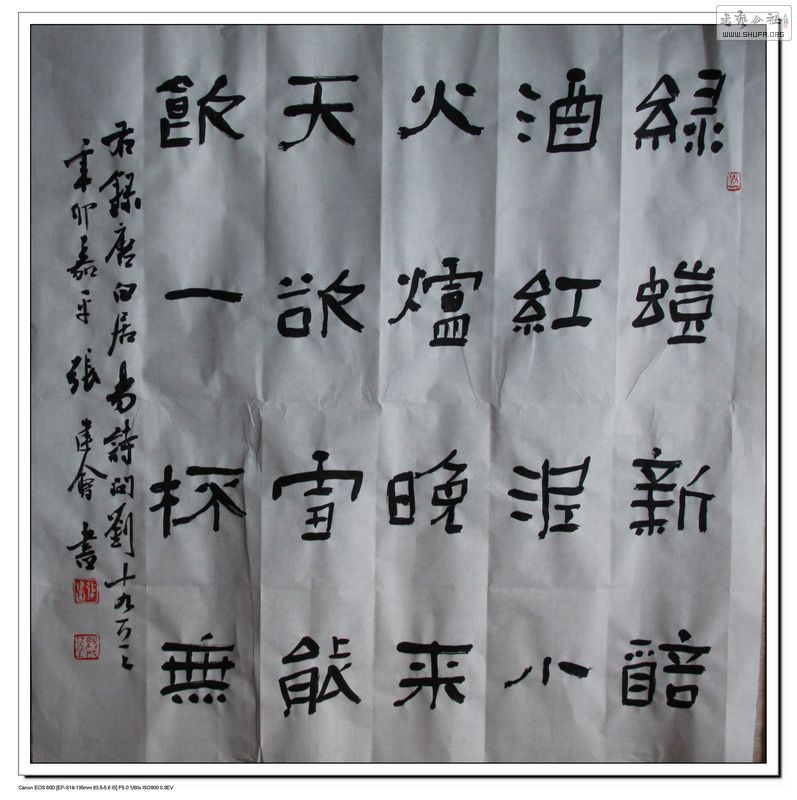 書藝公社
WWW.SHUFA.ORG
綠螘新醅
酒紅泥小
火爐晚來
天欲雪能
飲一杯無
右錄唐白居易詩問劉十九
辛卯嘉平張建會書
Canon EOS 60D [EF-S18-135mm f/3.5-5.6 IS] F5.0 1/60s ISO800 0.3EV